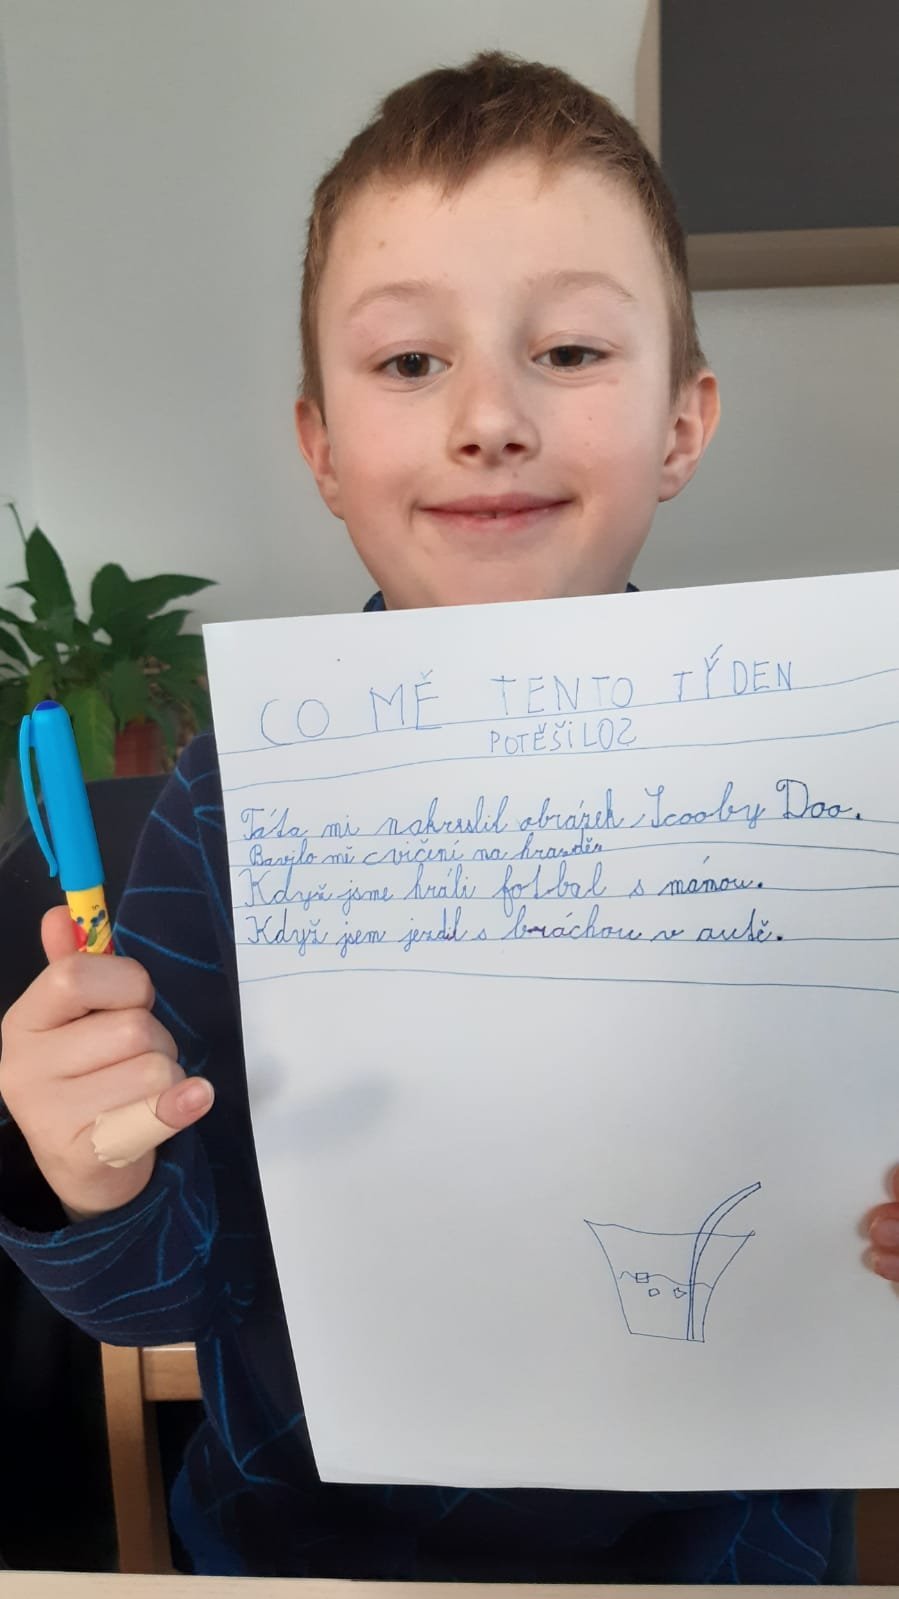 CO MĚ TENTO TÝDEN
POTĚŠILO?
Táta mi nakreslil obrázek Scooby Doo.
Bavilo mě cvičení na hrazdě
Když jsme hráli fotbal s mámou.
Když jsem jezdil s bráchou v autě.